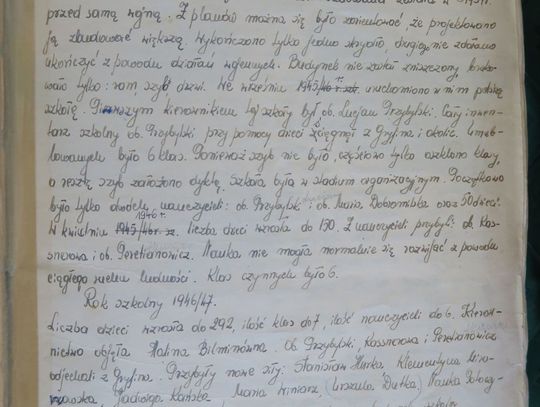 przed samą wojną. Z planów można się było zorientować, że projektowano
ją zbudować większą. Wykończono tylko jedno skrzydło, drugiego nie zdołano
ukończyć z powodu działań wojennych. Budynek nie został zniszczony, brako-
wało tylko: ram, szyb, drzwi. We wrześniu 1945/46 r. szk. uruchomiono w nim polską
szkołę. Pierwszym kierownikiem tej szkoły był ob. Lucjan Przybylski. Cały inwen-
tarz szkolny ob. Przybylski przy pomocy dzieci ściągnął z Gryfina i okolic. Umeb-
lowanych było 6 klas. Ponieważ szyb nie było, częściowo tylko oszklono klasy,
a resztę szyb założono dyktą. Szkoła była w stadium organizacyjnym. Początkowo
było tylko dwoje nauczycieli: ob. Przybylski i ob. Maria Dobromilska oraz 50 dzieci.
1946 r.
W kwietniu 1945/46 r. sz. liczba dzieci wzrosła do 130. Z nauczycieli przybyli: ob. Kos-
snorowa i ob. Peretianowicz. Nauka nie mogła normalnie się rozwijać z powodu
ciągłego ruchu ludności. Klas czynnych było 6.
Rok szkolny 1946/47.
Liczba dzieci wzrosła do 292, ilość klas do 7, ilość nauczycieli do 6. Kierow-
nictwo objęła Halina Bilminówna. Ob. Przybylski, Kossnorowa i Peretianowicz
odjechali z Gryfina. Przybyły nowe siły: Stanisław Hurka, Klementyna
Jadwiga Kańska, Maria Winiarz, Urszula Dutka,